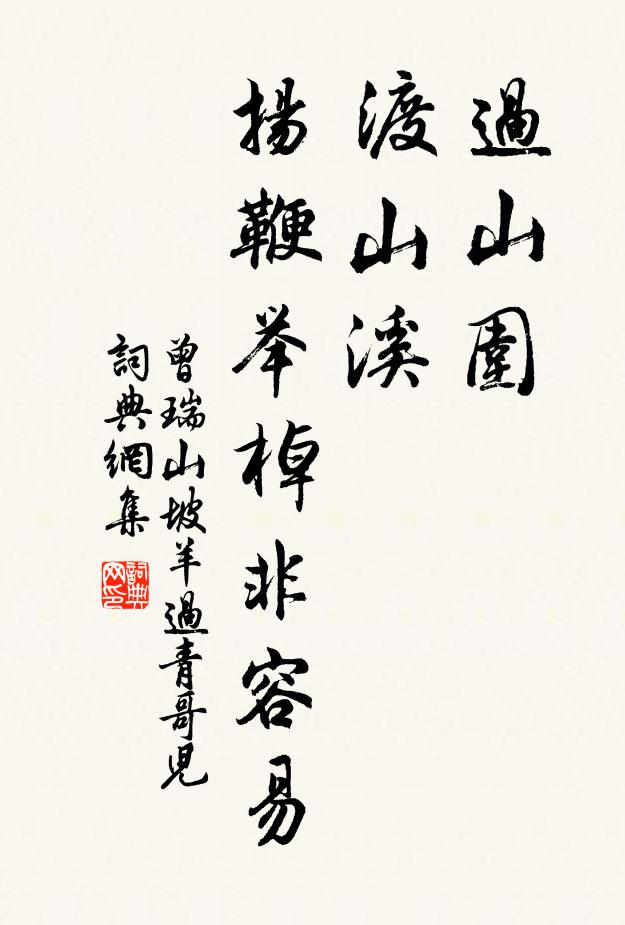 過山圍
渡山溪
揚鞭举棹非容易
曾瑞山坡羊過青哥児
詞典網集
詞典网印